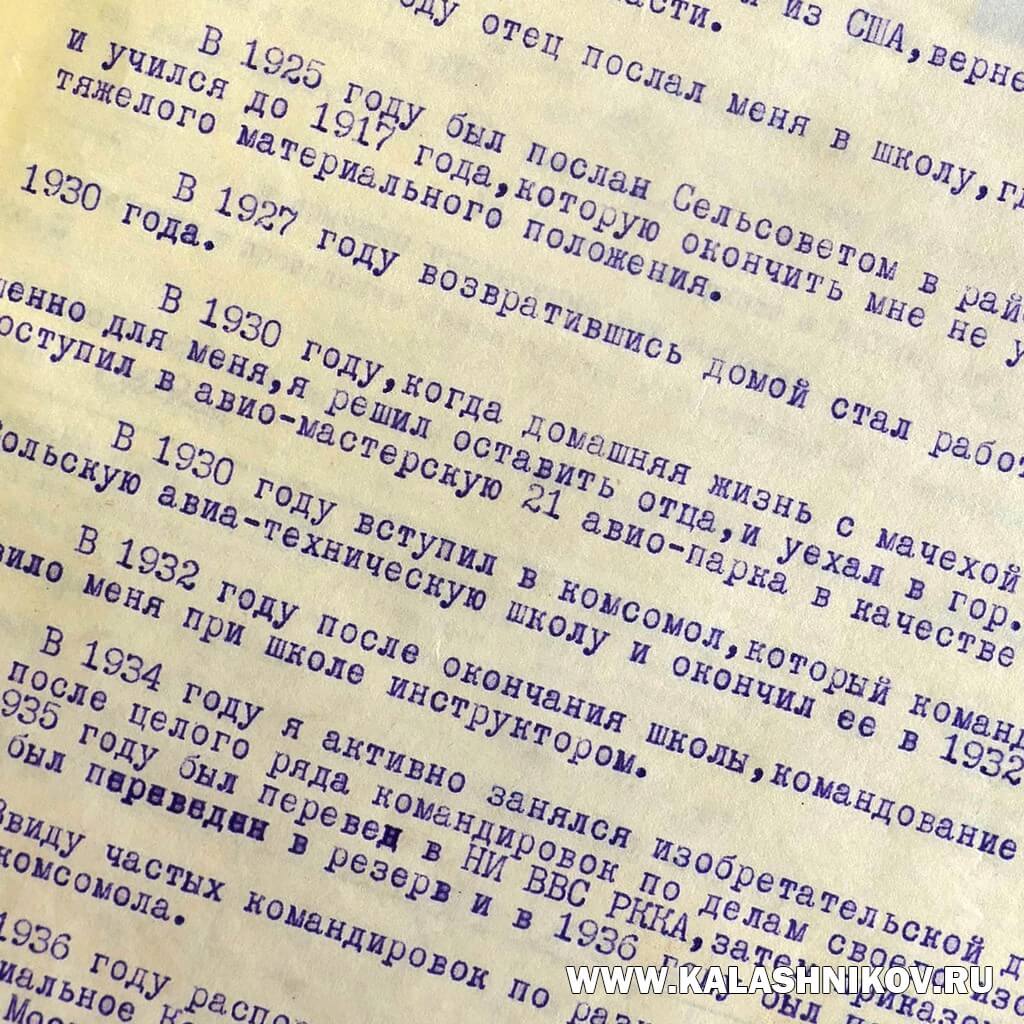 из США, верне
ду отец послал меня в школу, гд
В 1925 году был послан Сельсоветом в рай
и учился до 1917 года, которую окончить мне не у
тяжелого материального положения.
В 1927 году возвратившись домой стал работ
1930 года.
В 1930 году, когда домашняя жизнь с мачехой
енно для меня, я решил оставить отца, и уехал в гор.
оступил в авио-мастерскую 21 авио-парка в качестве
В 1930 году вступил в комсомол, который команд
ольскую авиа-техническую школу и окончил ее в 1932
В 1932 году после окончания школы, командование
вило меня при школе инструктором.
В 1934 году я активно занялся изобретательской д
после целого ряда командировок по делам своего изо
935 году был перевед в НИ ВВС РККА, затем приказом
был переведен в резерв и в 1936 году был
Ввиду частых командировок по раз
комсомола.
1936 году распо
иальное к
Моск
WWW.KALASHNIKOV.RU